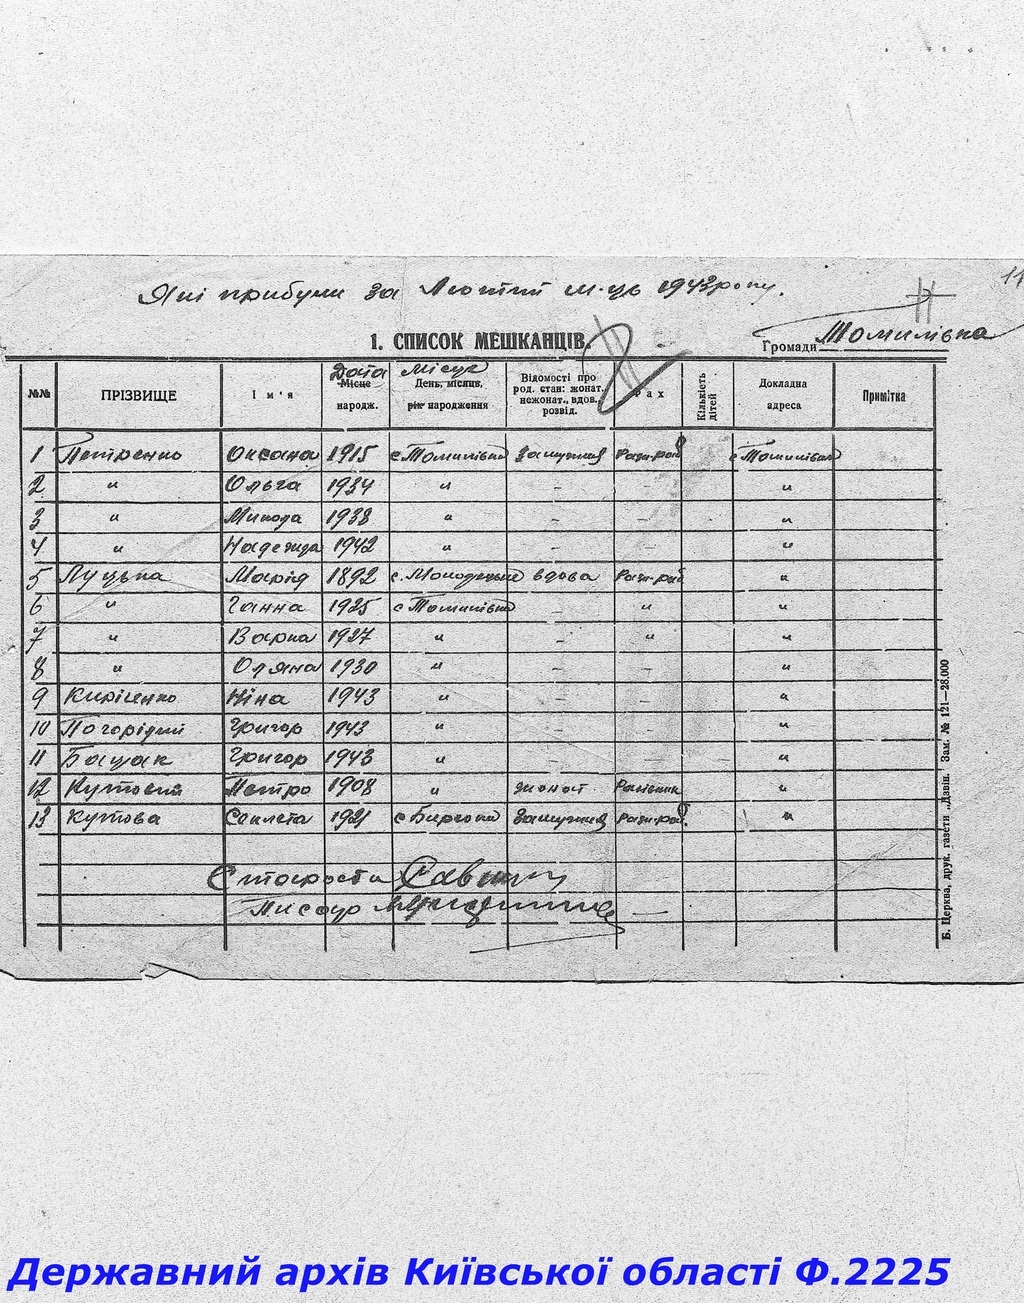 11
Які прибули за Лютий м-ць 1943 року.
1. СПИСОК МЕШКАНЦІВ
Громади Томилівка
№№ ПРІЗВИЩЕ І м'я Дата Місце народж. Місце День, місяць, рік народження Відомості про род. стан: жонат. нежонат., вдов., розвід. Фах Кількість дітей Докладна адреса Примітка
1 Петренко Оксана 1915 с Томилівка Замужня с Томилівка
2 " Ольга 1934 " – "
3 " Микола 1938 " – – "
4 " Надежда 1942 " – – "
5 Луцька Марія 1892 с. вдова "
6 " Ганна 1925 с Томилівка – " "
7 " Варка 1927 " – " "
8 " Оляна 1930 " – "
9 Кирієнко Ніна 1943 " – – "
10 Погорідний Григор 1943 " – – "
11 Бащак Григор 1943 " – – "
12 Кутовий Петро 1908 " жонат "
13 Кутова 1921 с Замужня "
Староста
Писар
Б. Церква, друк. газети „Дзвін". Зам. № 121—28.000
Державний архів Київської області Ф.2225